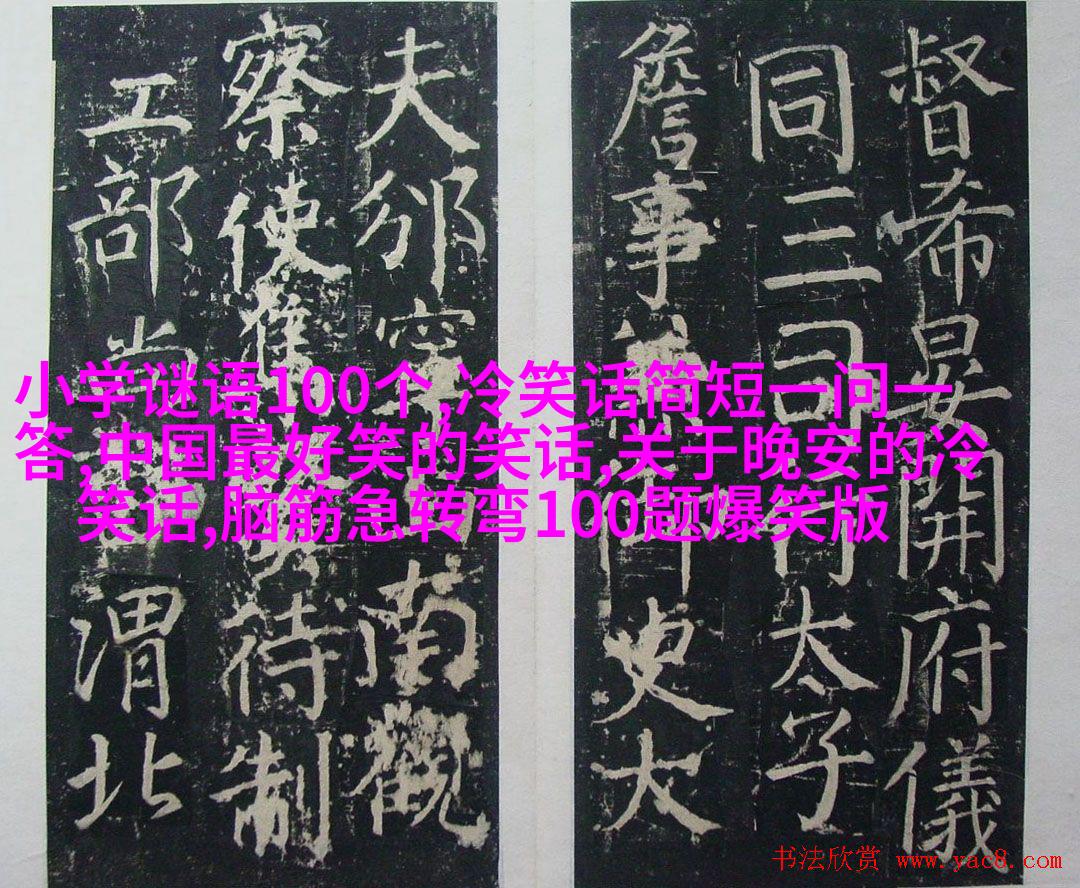 督希晏開府儀
同三司行太子
詹事兼御史大
夫邠寧南觀
察使待制
工部尚渭北
小学谜语100个,冷笑话简短一问一
答,中国最好笑的笑话,关于晚安的冷
笑话,脑筋急转弯100题爆笑版
书法欣赏 www.yac8.com